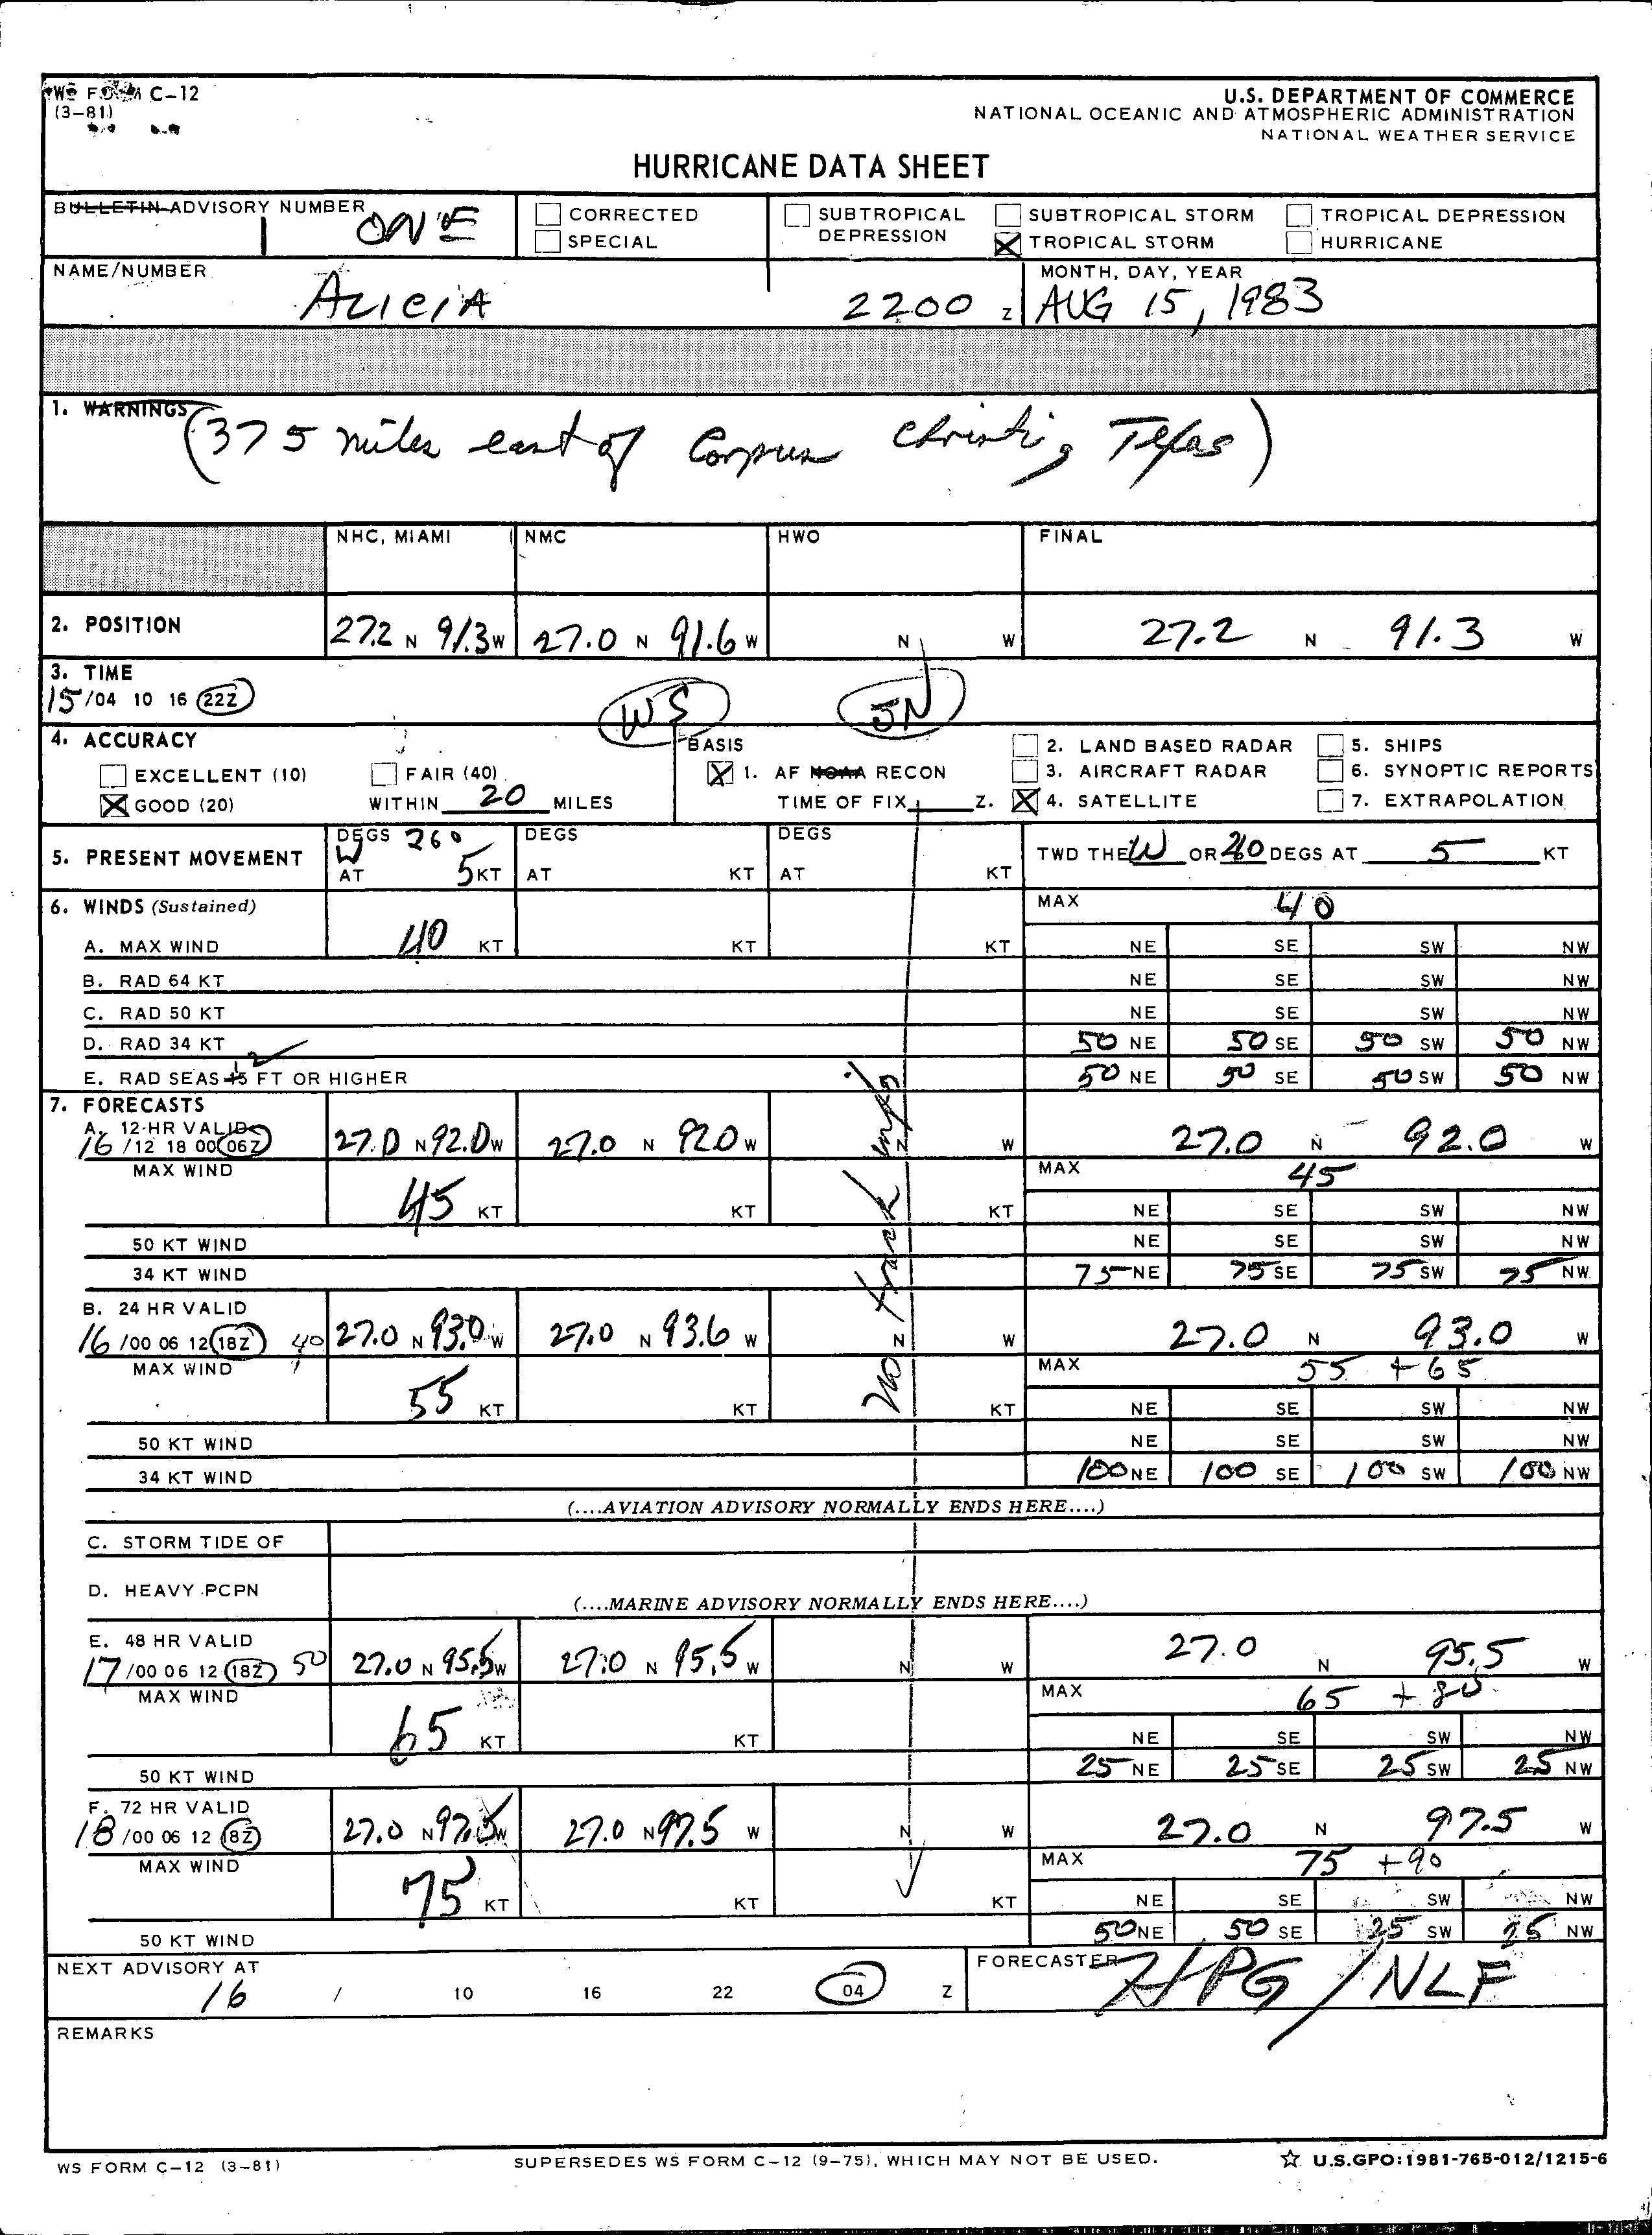 WS FORM C-12
(3-81)
U.S. DEPARTMENT OF COMMERCE
NATIONAL OCEANIC AND ATMOSPHERIC ADMINISTRATION
NATIONAL WEATHER SERVICE
HURRICANE DATA SHEET
BULLETIN ADVISORY NUMBER
1 ONE
CORRECTED
SPECIAL
SUBTROPICAL DEPRESSION
SUBTROPICAL STORM
TROPICAL STORM
TROPICAL DEPRESSION
HURRICANE
NAME/NUMBER
ALICIA
2200 Z
MONTH, DAY, YEAR
AUG 15, 1983
1. WARNINGS
(375 miles east of Corpus Christi, Texas)
NHC, MIAMI NMC HWO FINAL
2. POSITION 27.2 N 91.3 W 27.0 N 91.6 W N W 27.2 N 91.3 W
3. TIME
15/04 10 16 22Z WS JN
4. ACCURACY
EXCELLENT (10) FAIR (40)
GOOD (20) WITHIN 20 MILES
BASIS
1. AF NOAA RECON
TIME OF FIX Z.
2. LAND BASED RADAR
3. AIRCRAFT RADAR
4. SATELLITE
5. SHIPS
6. SYNOPTIC REPORTS
7. EXTRAPOLATION
5. PRESENT MOVEMENT
DEGS 260 DEGS DEGS
W
AT 5 KT AT KT AT KT
TWD THE W OR DEGS AT 5 KT
6. WINDS (Sustained) MAX 40
A. MAX WIND 40 KT KT KT NE SE SW NW
B. RAD 64 KT NE SE SW NW
C. RAD 50 KT NE SE SW NW
D. RAD 34 KT 50 NE 50 SE 50 SW 50 NW
E. RAD SEAS 15 12 FT OR HIGHER 50 NE 50 SE 50 SW 50 NW
7. FORECASTS
A. 12-HR VALID
16/12 18 00 06Z 27.0 N 92.0 W 27.0 N 92.0 W N W 27.0 N 92.0 W
MAX WIND MAX 45
45 KT KT KT NE SE SW NW
50 KT WIND NE SE SW NW
34 KT WIND 75 NE 75 SE 75 SW 75 NW
no track
B. 24 HR VALID
16/00 06 12 18Z 40 27.0 N 93.0 W 27.0 N 93.6 W N W 27.0 N 93.0 W
MAX WIND MAX 55 + 65
55 KT KT KT NE SE SW NW
50 KT WIND NE SE SW NW
34 KT WIND 100 NE 100 SE 100 SW 100 NW
(....AVIATION ADVISORY NORMALLY ENDS HERE....)
C. STORM TIDE OF
D. HEAVY PCPN
(....MARINE ADVISORY NORMALLY ENDS HERE....)
E. 48 HR VALID
17/00 06 12 18Z 50 27.0 N 95.5 W 27.0 N 95.5 W N W 27.0 N 95.5 W
MAX WIND MAX 65 + 80
65 KT KT NE SE SW NW
50 KT WIND 25 NE 25 SE 25 SW 25 NW
F. 72 HR VALID
18/00 06 12 18Z 27.0 N 97.5 W 27.0 N 97.5 W N W 27.0 N 97.5 W
MAX WIND MAX 75 + 90
75 KT KT KT NE SE SW NW
50 KT WIND 50 NE 50 SE 25 SW 25 NW
NEXT ADVISORY AT
16 / 10 16 22 04 Z
FORECASTER HPG/NLF
REMARKS
WS FORM C-12 (3-81)
SUPERSEDES WS FORM C-12 (9-75), WHICH MAY NOT BE USED.
☆ U.S.GPO:1981-765-012/1215-6